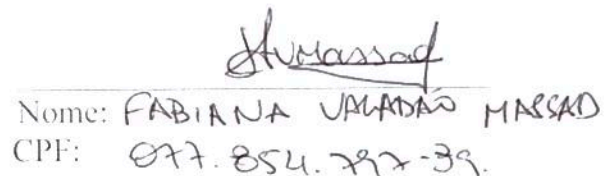 Nome: FABIANA VALADÃO MASSAD
CPF: 077.854.797-39.